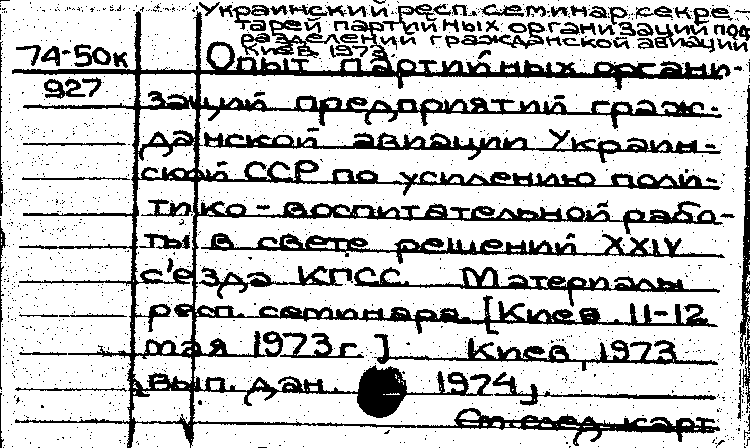 Украинский респ. семинар секре-
тарей партийных организаций под
разделений гражданской авиации
Киев. 1973
74-50к
927
Опыт партийных органи-
заций предприятий граж-
данской авиации Украин-
ской ССР по усилению поли-
тико-воспитательной рабо-
ты в свете решений XXIV
с'езда КПСС. Материалы
респ. семинара. [Киев. 11-12
мая 1973г.] Киев, 1973
[вып. дан. 1974].
См.след. карт